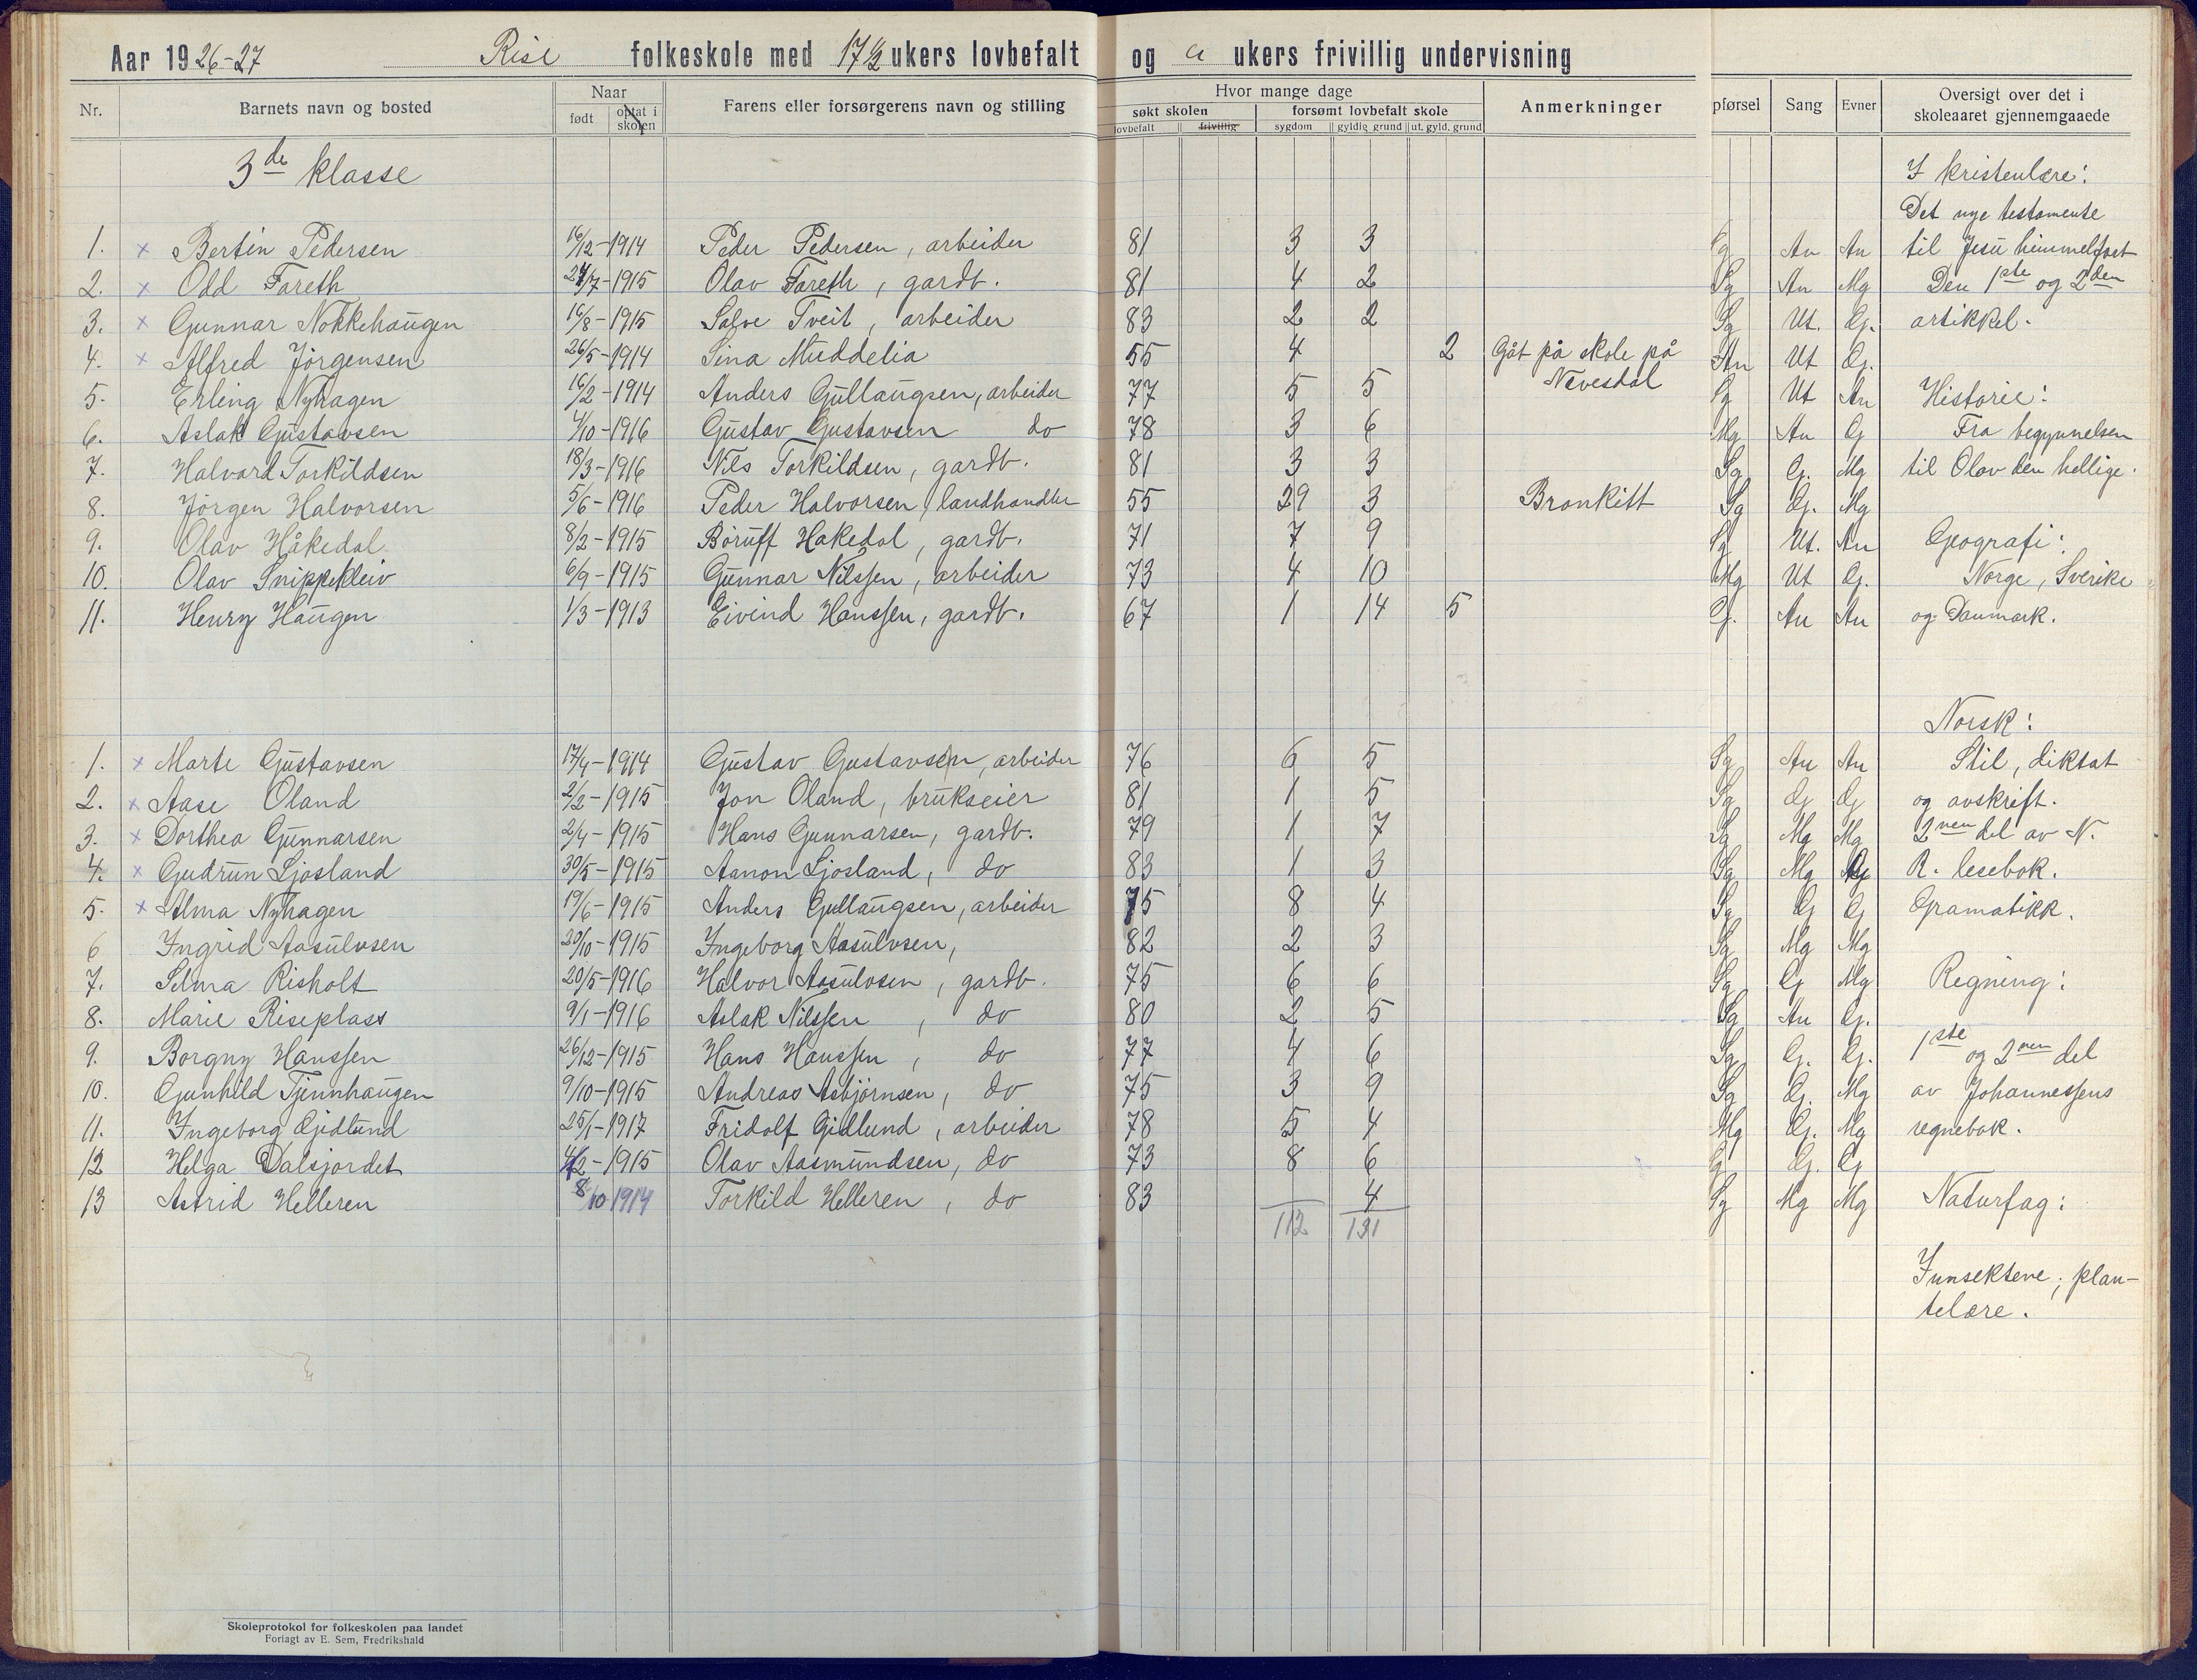 Aar 1926-27 Rise folkeskole med 17 1/2 ukers lovbefalt og " ukers frivillig undervisning
Nr. Barnets navn og bosted Naar født optat i skolen Farens eller forsørgerens navn og stilling Hvor mange dage søkt skolen lovbefalt frivillig forsømt lovbefalt skole sygdom gyldig grund ut. gyld. grund Anmerkninger pførsel Sang Evner Oversigt over det i skoleaaret gjennemgaaede
3de klasse I kristenlære:
Det nye testamente
1. x Bertin Pedersen 16/12-1914 Peder Pedersen, arbeider 81 3 3 An An til Jesu himmelfart
2. x Odd Fareth 27/7-1915 Olav Fareth, gardb. 81 4 2 Sg An Mg Den 1ste og 2den
3. x Gunnar Nokkehaugen 16/8-1915 Salve Tveit, arbeider 83 2 2 Sg Ut. G. artikkel.
4. x Alfred Jörgensen 26/5-1914 Sina Muddelia 55 4 2 Gåt på skole på An Ut G.
Nevesdal
5. Erling Nyhagen 16/2-1914 Anders Gullaugsen, arbeider 77 5 5 Sg Ut An Historie:
6. Aslak Gustavsen 4/10-1916 Gustav Gustavsen do 78 3 6 Mg An G Fra begynnelsen
7. Halvard Torkildsen 18/3-1916 Nils Torkildsen, gardb. 81 3 3 Sg G. Mg til Olav den hellige.
8. Jörgen Halvorsen 5/6-1916 Peder Halvorsen, landhandler 55 29 3 Bronkitt Sg G. Mg
9. Olav Håkedal 8/2-1915 Hakedal, gardb. 71 7 9 Sg Ut. An Geografi:
10. Olav Snippekleiv 6/9-1915 Gunnar Nilssen, arbeider 73 4 10 Mg Ut G. Norge, Sverike
11. Henry Haugen 1/3-1913 Eivind Hanssen, gardb. 67 1 14 5 G. An An og Danmark.
Norsk:
1. x Marte Gustavsen 17/4-1914 Gustav Gustavsen, arbeider 76 6 5 Sg An An Stil, diktat
2. x Aase Öland 2/2-1915 Jon Öland, brukseier 81 1 5 Sg G G og avskrift.
3. x Dorthea Gunnarsen 2/4-1915 Hans Gunnarsen, gardb. 79 1 7 Sg Mg Mg 2nen del av N.
4. x Gudrun Ljosland 30/5-1915 Aanon Ljosland, do 83 1 3 Sg Mg R. lesebok.
5. x Alma Nyhagen 19/6-1915 Anders Gullaugsen, arbeider 75 8 4 Sg G G Gramatikk.
6 Ingrid Aasulvsen 20/10-1915 Ingeborg Aasulvsen, 82 2 3 Sg Mg Mg
7. Selma Risholt 20/5-1916 Halvor Aasulvsen, gardb. 75 6 6 Sg G Mg Regning:
8. Marie Riseplass 9/1-1916 Aslak Nilssen, do 80 2 5 Sg An G.
9. Borgny Hanssen 26/12-1915 Hans Hanssen, do 77 4 6 Sg G. G. 1ste og 2nen del
10. Gunhild Tjennhaugen 9/10-1915 Andreas Asbjörnsen, do 75 3 9 Sg G. Mg av Johannessens
11. Ingeborg Gidlund 25/1-1917 Fridolf Gidlund, arbeider 78 5 4 Mg G. Mg regnebok.
12 Helga Dalsjordet 4/2-1915 Olav Aasmundsen, do 73 8 6 G G. G
13 Astrid Helleren 8/10 1914 Torkild Helleren, do 83 4 Sg Mg Mg Naturfag:
112 131
Innsektene; plan-
telære.
Skoleprotokol for folkeskolen paa landet
Forlagt av E. Sem, Fredrikshald